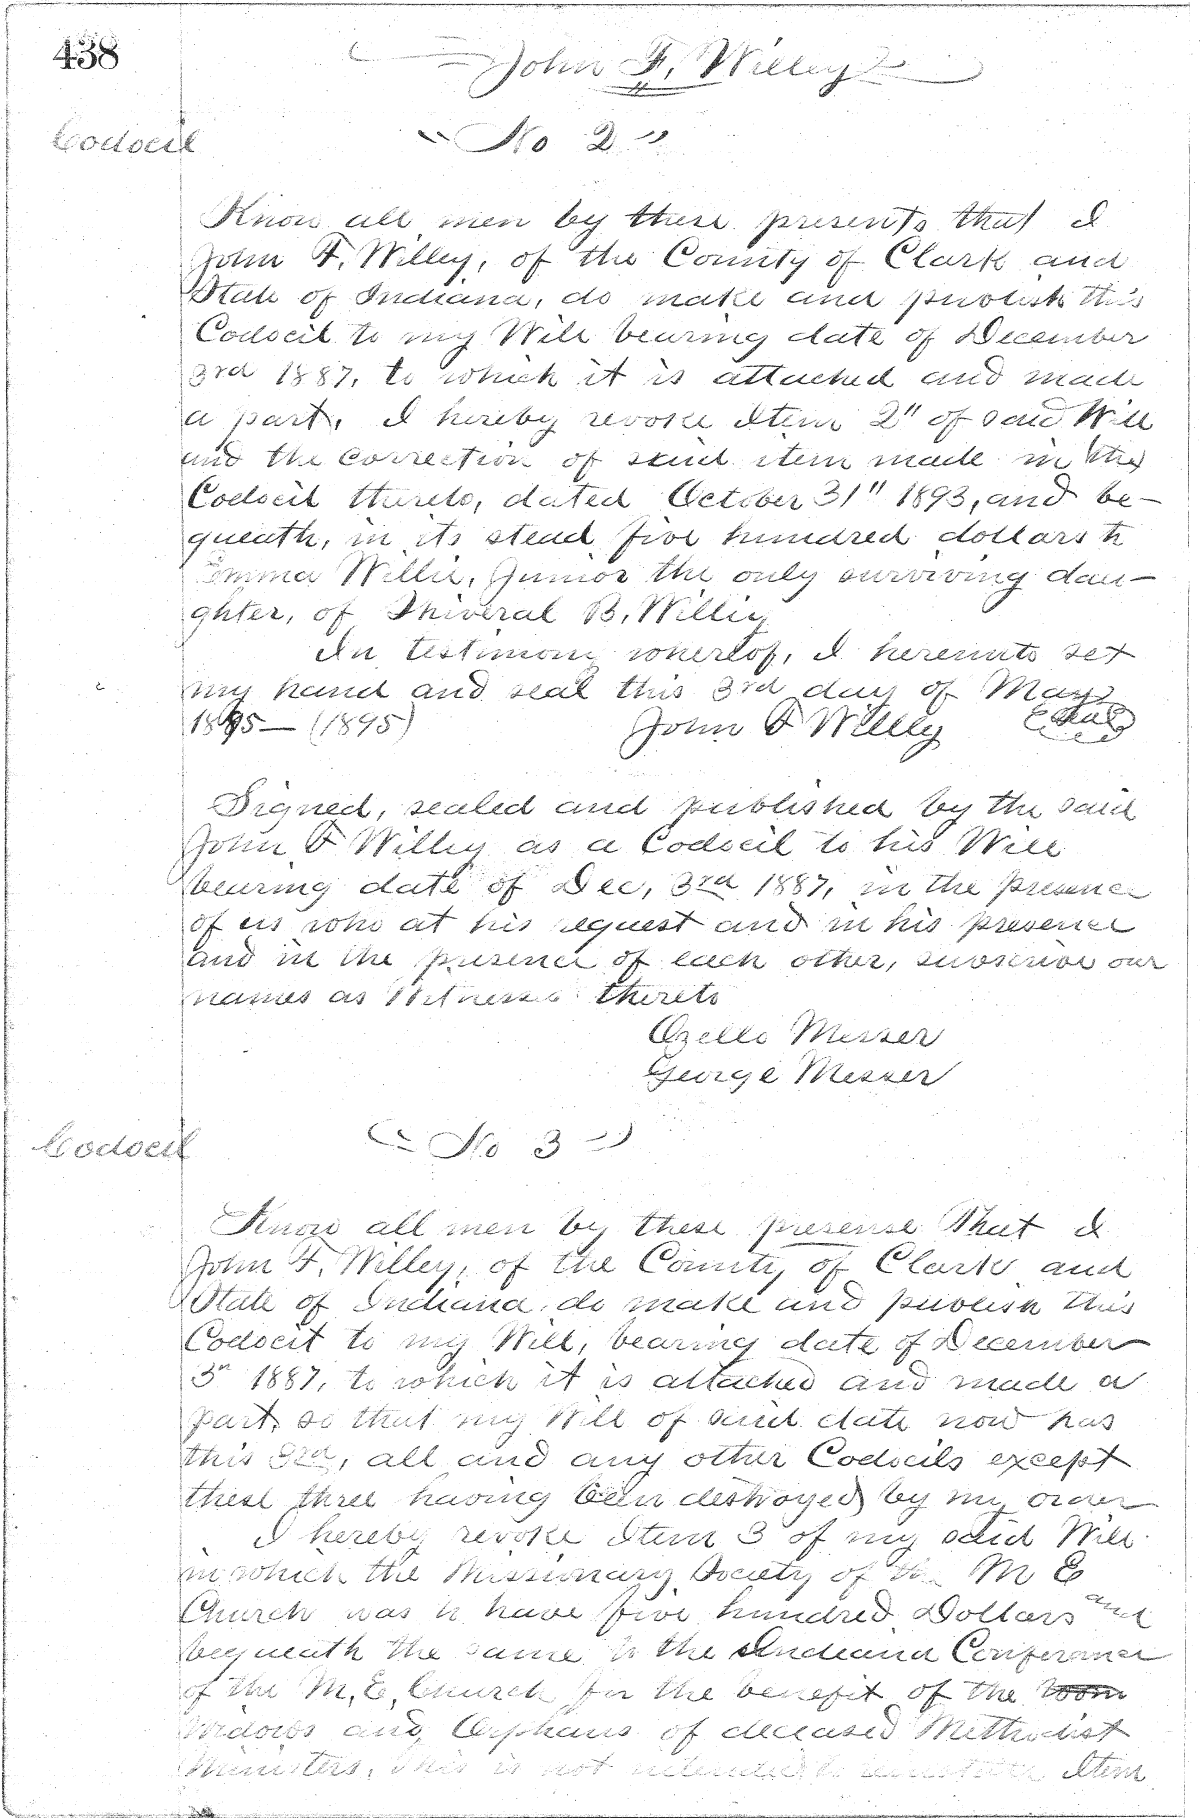 438
John F. Willey
Codocil
"No 2"
Know all men by these presents that I
John F. Willey, of the County of Clark and
State of Indiana, do make and publish this
Codocil to my Will bearing date of December
3rd 1887, to which it is attached and made
a part, I hereby revoke Item 2" of said Will
and the correction of said item made in the
Codocil thereto, dated October 31" 1893, and be-
queath, in its stead five hundred dollars to
Emma Willie, Junior the only surviving dau-
ghter, of B. Willey
In testimony whereof, I hereunto set
my hand and seal this 3rd day of May
1895— (1895) John F Willey Seal
Signed, sealed and published by the said
John F Willey as a Codocil to his Will
bearing date of Dec, 3rd 1887, in the presence
of us who at his request and in his presence
and in the presence of each other, subscribe our
names as Witnesses thereto
Ozello Messer
George Messer
Codocil
No 3
Know all men by these presense That I
John F. Willey, of the County of Clark and
State of Indiana do make and publish this
Codocil to my Will, bearing date of December
3" 1887, to which it is attached and made a
part, so that my Will of said date now has
this 3rd, all and any other Codocils except
these three having been destroyed by my order
I hereby revoke Item 3 of my said Will
in which the Missionary Society of the M E
Church was to have five hundred Dollars and
bequeath the same to the Indiana Conference
of the M, E, Church for the benefit of the
Widows and Orphans of deceased Methodist
Ministers, This is not intended to Item